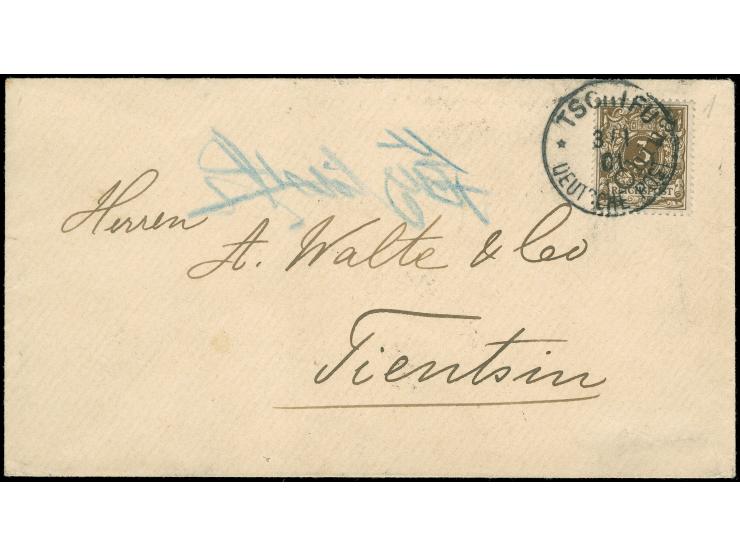 TSCHIFU
3/1
01
DEUTSCHE
3
REICHSPOST
1
Herren
A. Walte & Co
Tientsin